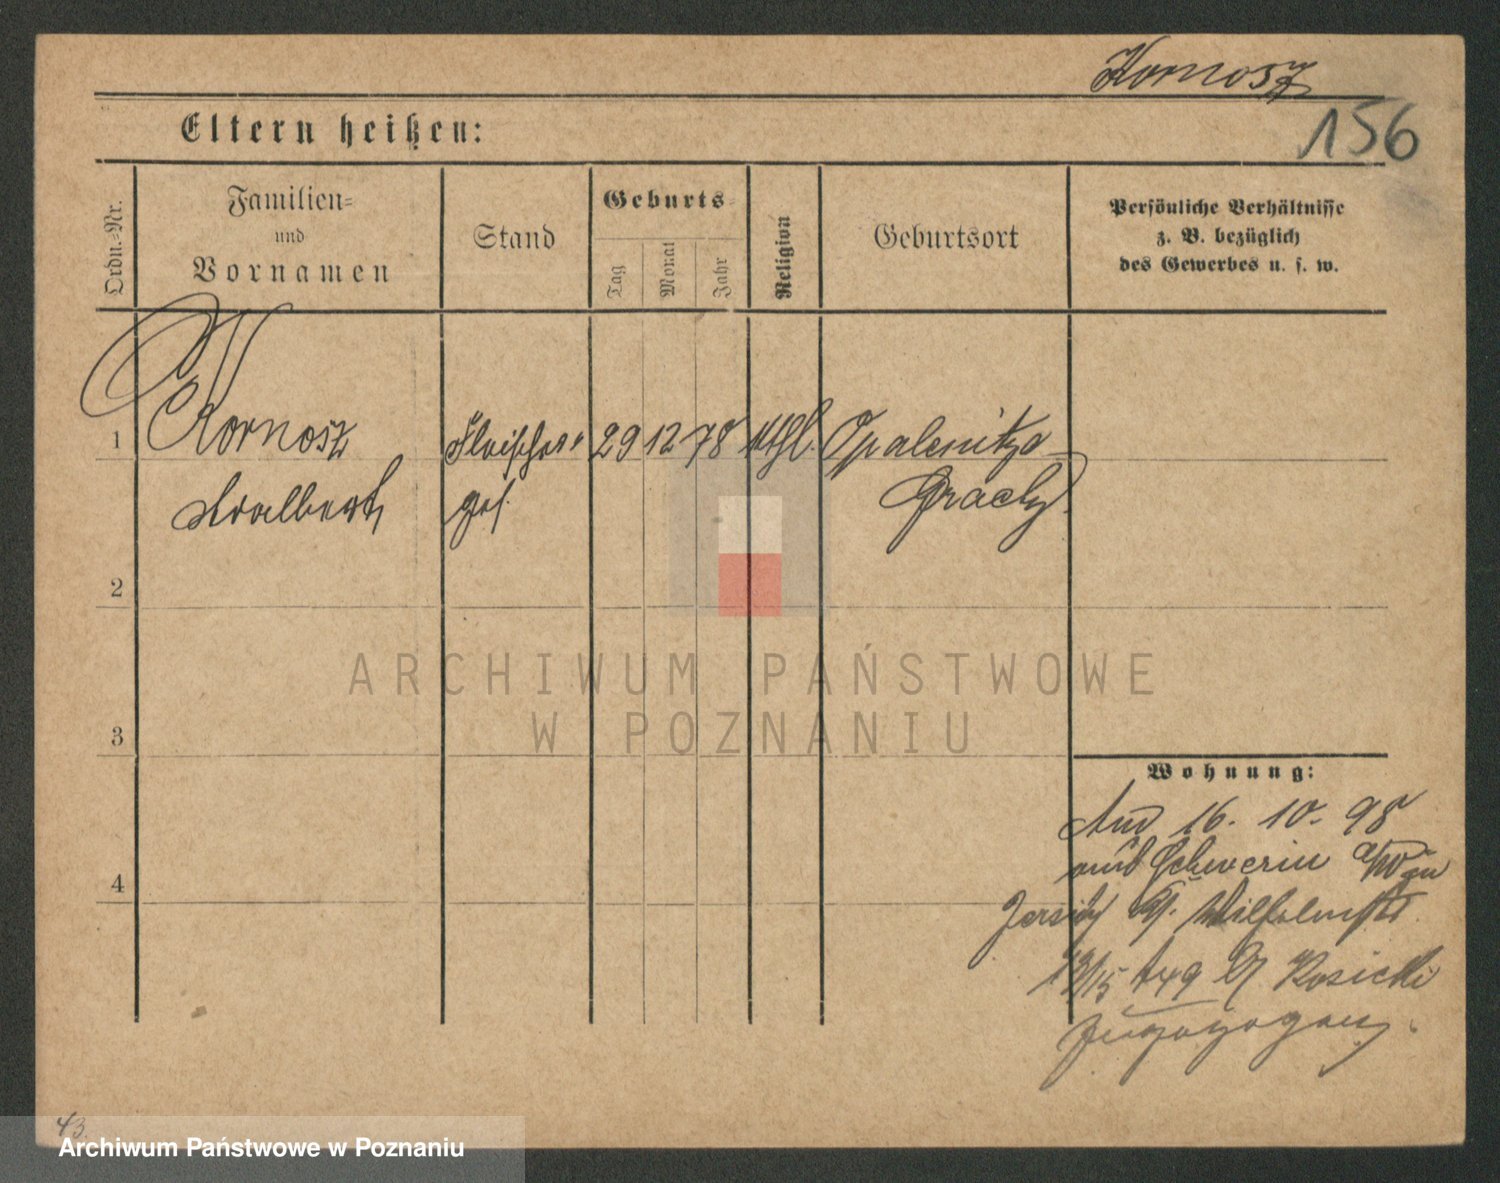 Kornosz
156
Eltern heißen:
Ordn.-Nr.
Familien-
und
Vornamen
Stand
Geburts-
Tag
Monat
Jahr
Religion
Geburtsort
Persönliche Verhältnisse
z. B. bezüglich
des Gewerbes u. s. w.
1
Kornosz
Adalbert
Fleischer
ges.
29 12 78
kthl.
Opalenitza
Graetz
2
ARCHIWUM PAŃSTWOWE
W POZNANIU
3
Wohnung:
16. 10. 98
Schwerin a/W zu
Jersitz Gr. Wilhelmstr.
13/15 Kosicki
zugezogen.
4
43
Archiwum Państwowe w Poznaniu